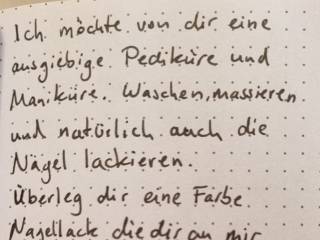 Ich möchte von dir eine
ausgiebige Pediküre und
Maniküre. Waschen, massieren
und natürlich auch die
Nägel lackieren.
Überleg dir eine Farbe
Nagellack die dir an mir